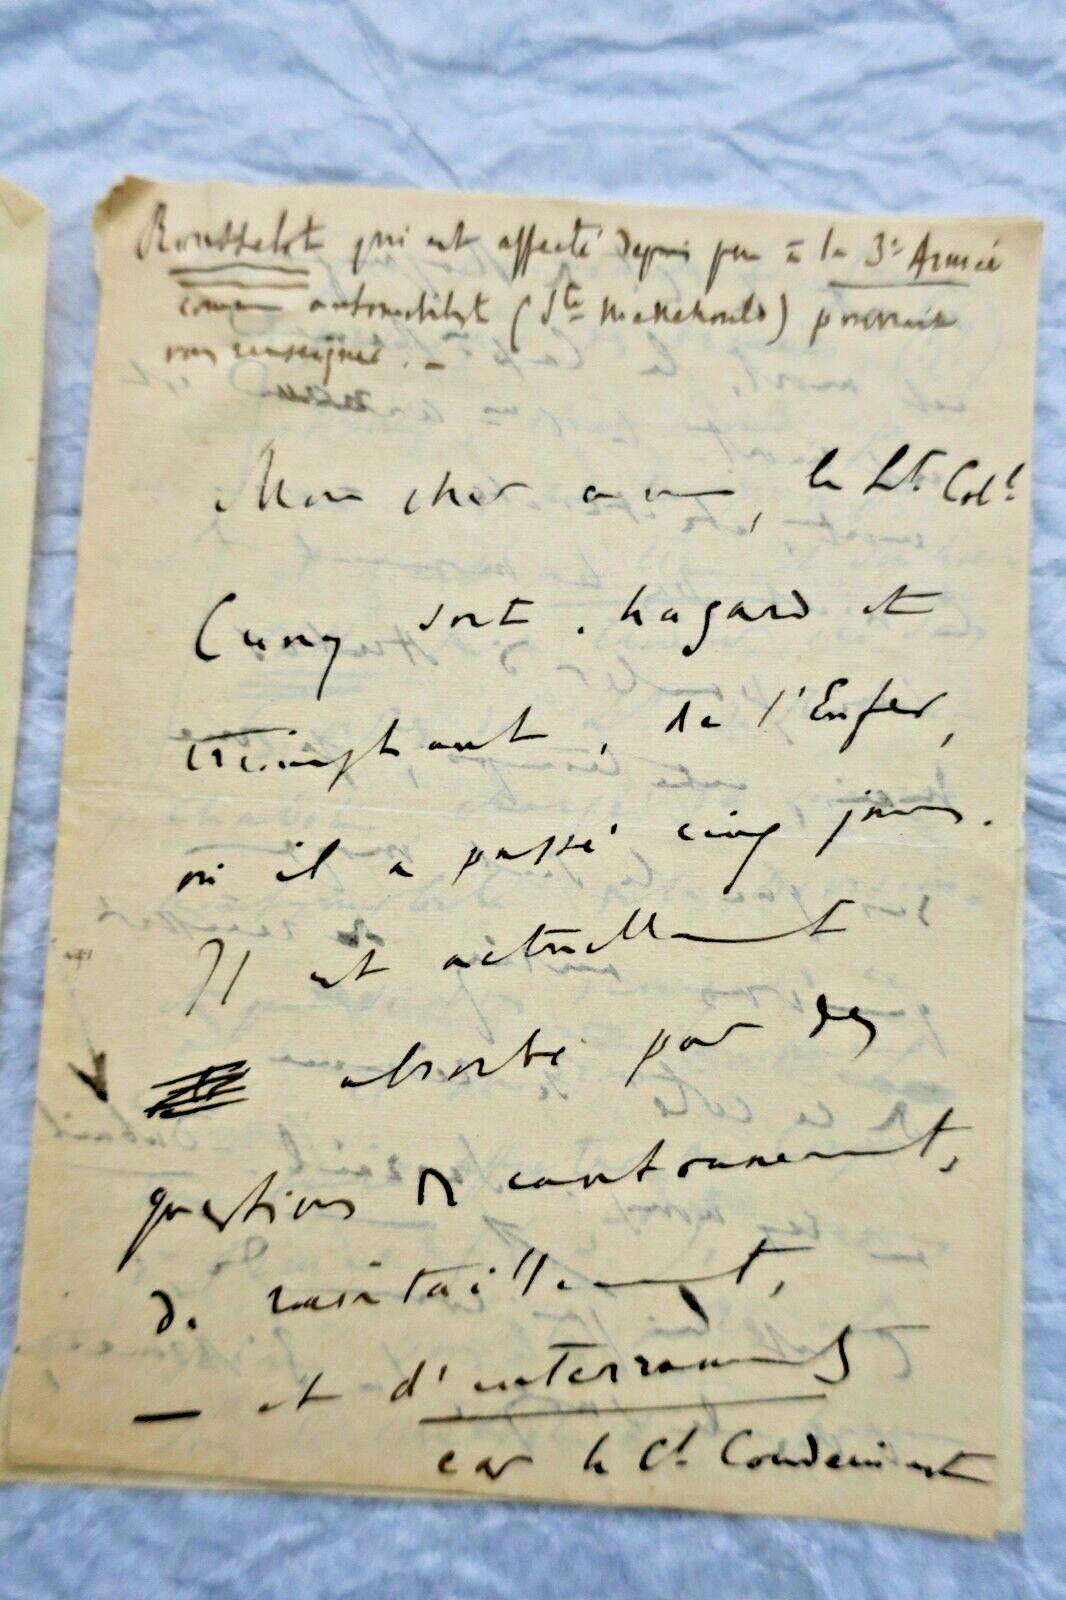 Rousselot qui est affecté depuis peu à la 3e Armée
comme automobiliste (Ste Menehould) pourrait
vous renseigner. _
Mon cher ami, le Lt Coll
Cuny sort, hagard et
triomphant, de l'Enfer,
où il a passé cinq jours.
Il est actuellement
absorbé par des
questions de cantonnement,
de ravitaillement,
— et d'enterrements
car le Ct Coudein est